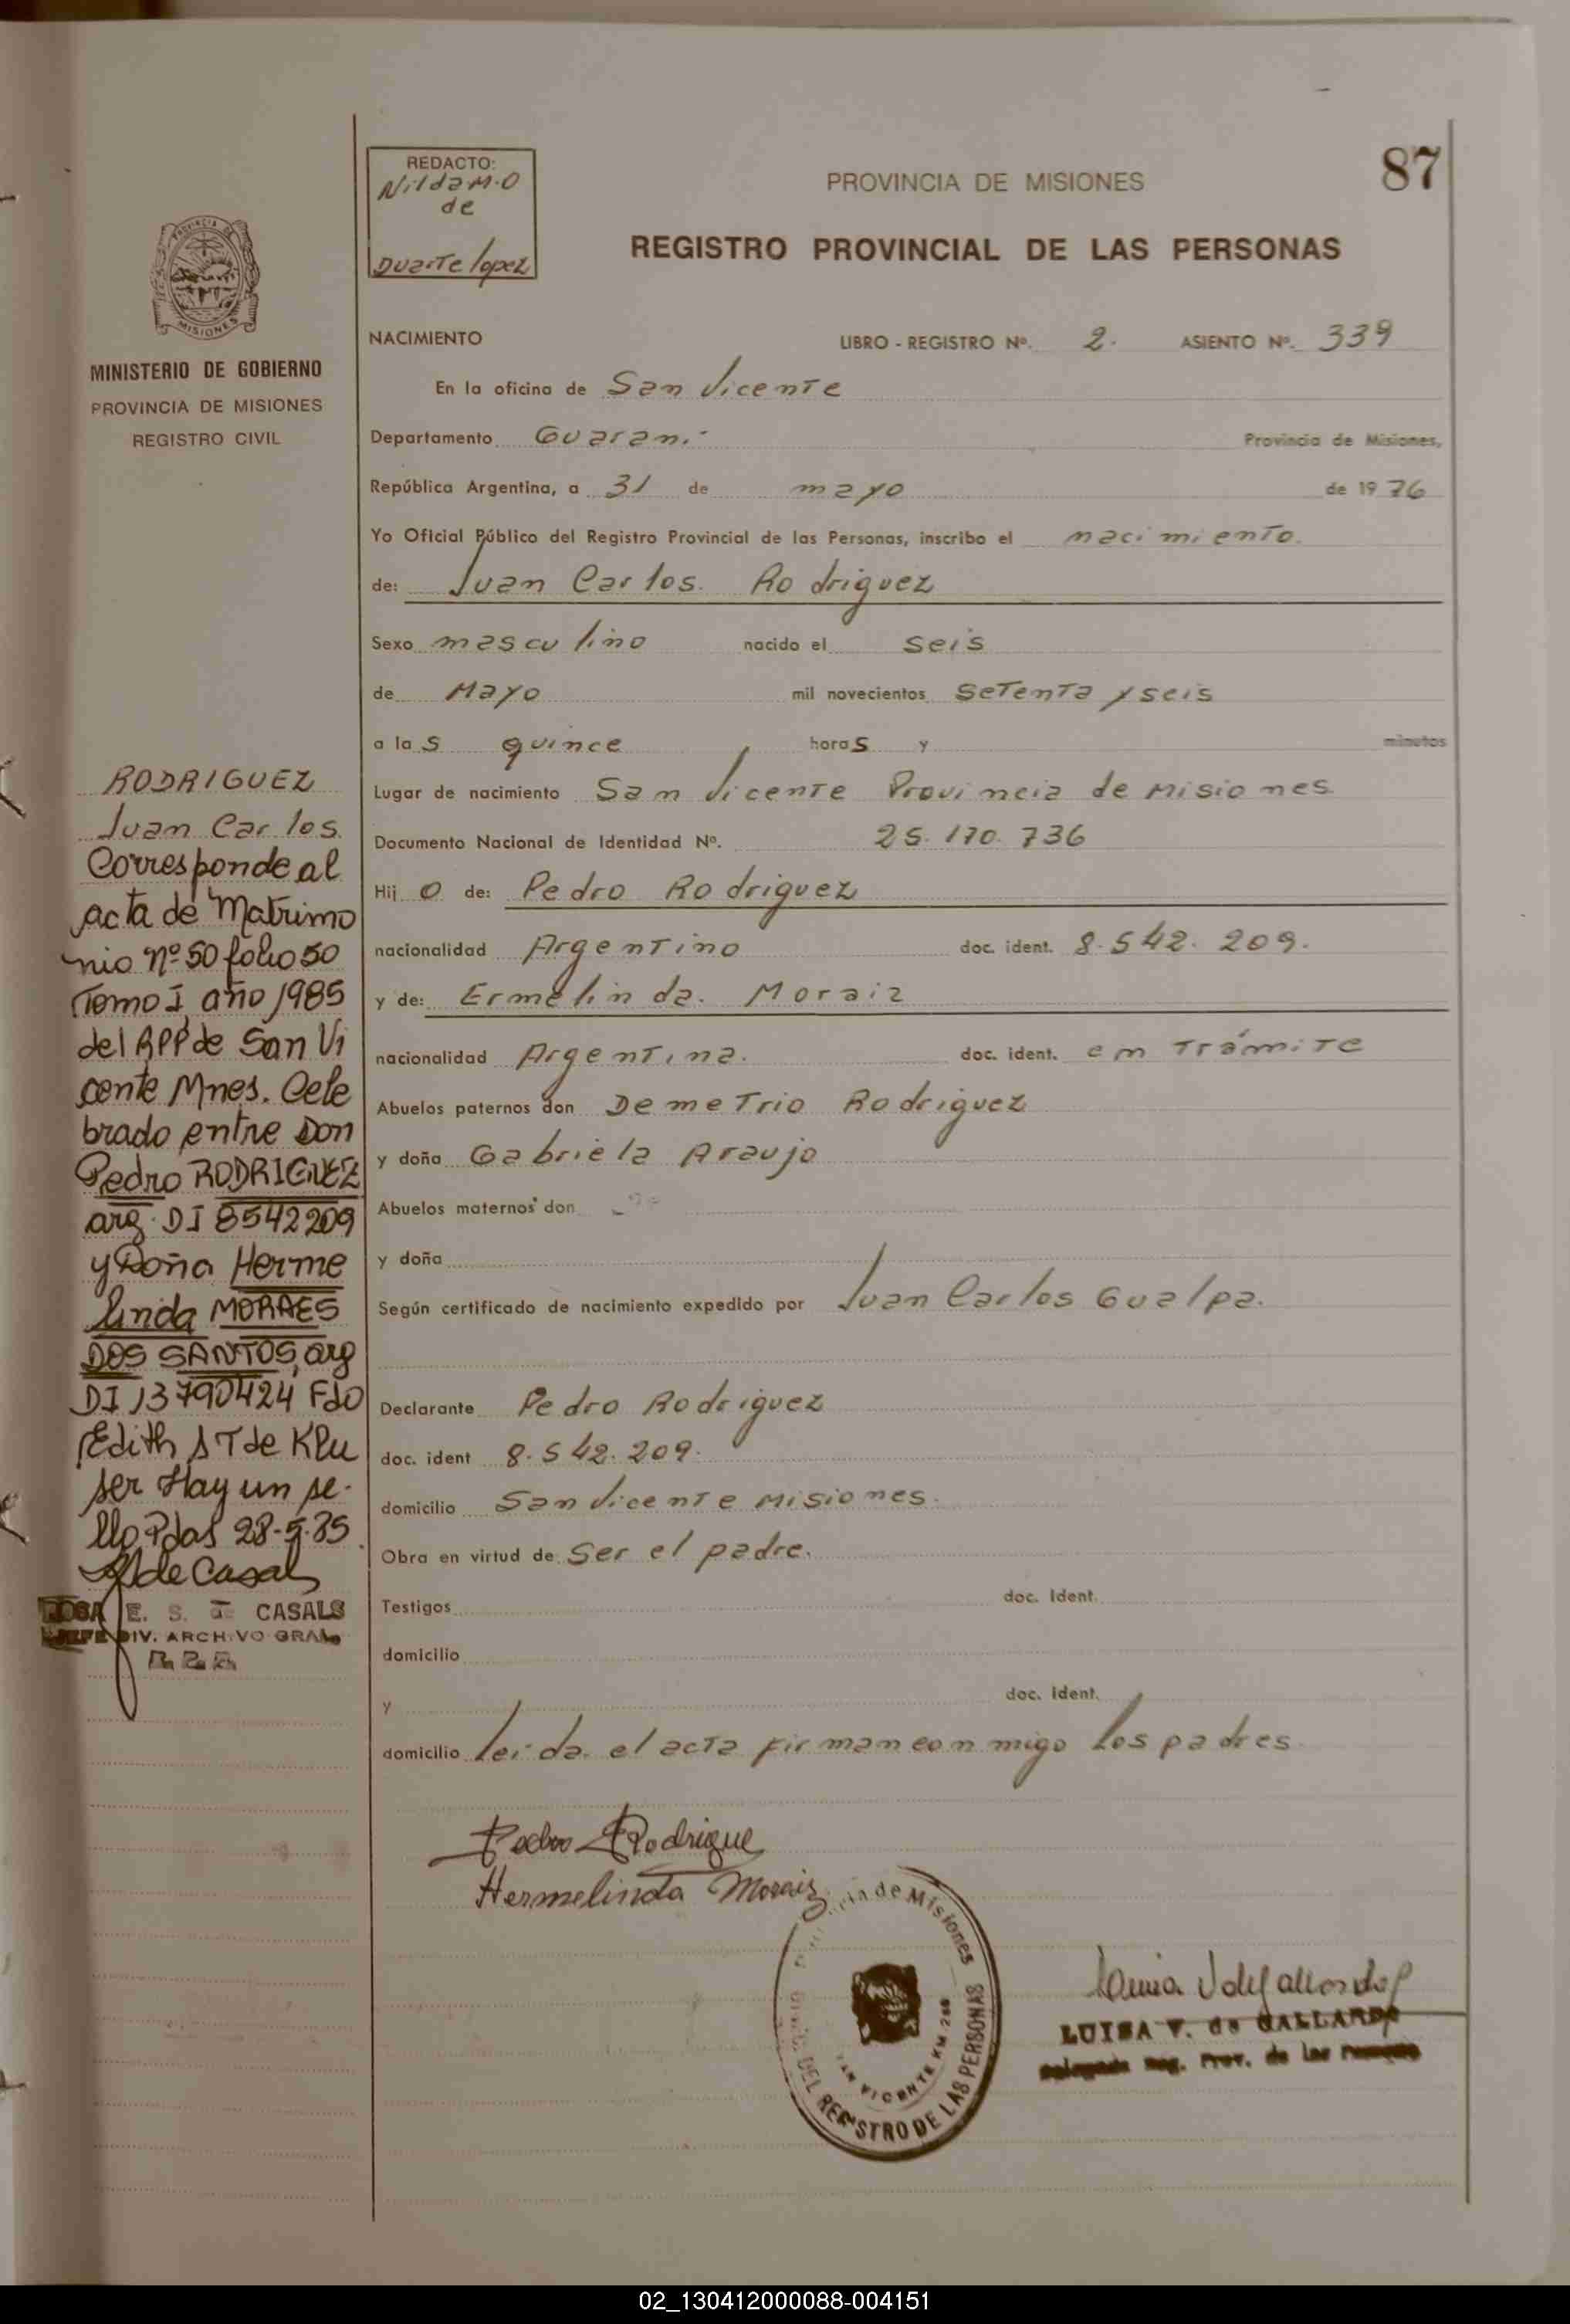 87
REDACTO:
Nilda M. O
de
Duarte lopez
PROVINCIA DE MISIONES
REGISTRO PROVINCIAL DE LAS PERSONAS
PROVINCIA DE
MISIONES
MINISTERIO DE GOBIERNO
PROVINCIA DE MISIONES
REGISTRO CIVIL
NACIMIENTO LIBRO - REGISTRO Nº. 2. ASIENTO Nº. 339
En la oficina de San Vicente
Departamento Guaraní Provincia de Misiones,
República Argentina, a 31 de mayo de 1976
Yo Oficial Público del Registro Provincial de las Personas, inscribo el nacimiento.
de: Juan Carlos. Rodriguez
Sexo masculino nacido el seis
de Mayo mil novecientos setenta y seis
a las quince horas y minutos
Lugar de nacimiento San Vicente Provincia de Misiones
Documento Nacional de Identidad Nº. 25.170.736
Hijo de: Pedro Rodriguez
nacionalidad Argentino doc. ident. 8.542.209.
y de: Ermelinda. Moraiz
nacionalidad Argentina. doc. ident. en Trámite
Abuelos paternos don Demetrio Rodriguez
y doña Gabriela Araujo
Abuelos maternos don
y doña
Según certificado de nacimiento expedido por Juan Carlos Gualpa.
Declarante Pedro Rodriguez
doc. ident 8.542.209.
domicilio San Vicente Misiones.
Obra en virtud de Ser el padre.
Testigos doc. Ident.
domicilio
y doc. Ident.
domicilio Leida el acta firman conmigo Los padres
Pedro Rodrigue
Hermelinda Moraiz
RODRIGUEZ
Juan Carlos
Corresponde al
acta de Matrimo
nio nº 50 folio 50
Tomo I, año 1985
del RPP de San Vi
cente Mnes. Cele
brado entre Don
Pedro RODRIGUEZ
arg. DI 8542209
y Doña Herme
linda MORAES
DOS SANTOS, arg
DI 13790424 Fdo
Edith S T de Klu
ser Hay un se-
llo Pdas 28-5-85
de Casals
ROSA E. S. de CASALS
JEFE DIV. ARCHIVO GRAL.
de Misiones
DEL REGISTRO DE LAS PERSONAS
SAN VICENTE KM 266
LUISA V. de GALLARDO
Delegada Reg. Prov. de las Personas
02_130412000088-004151